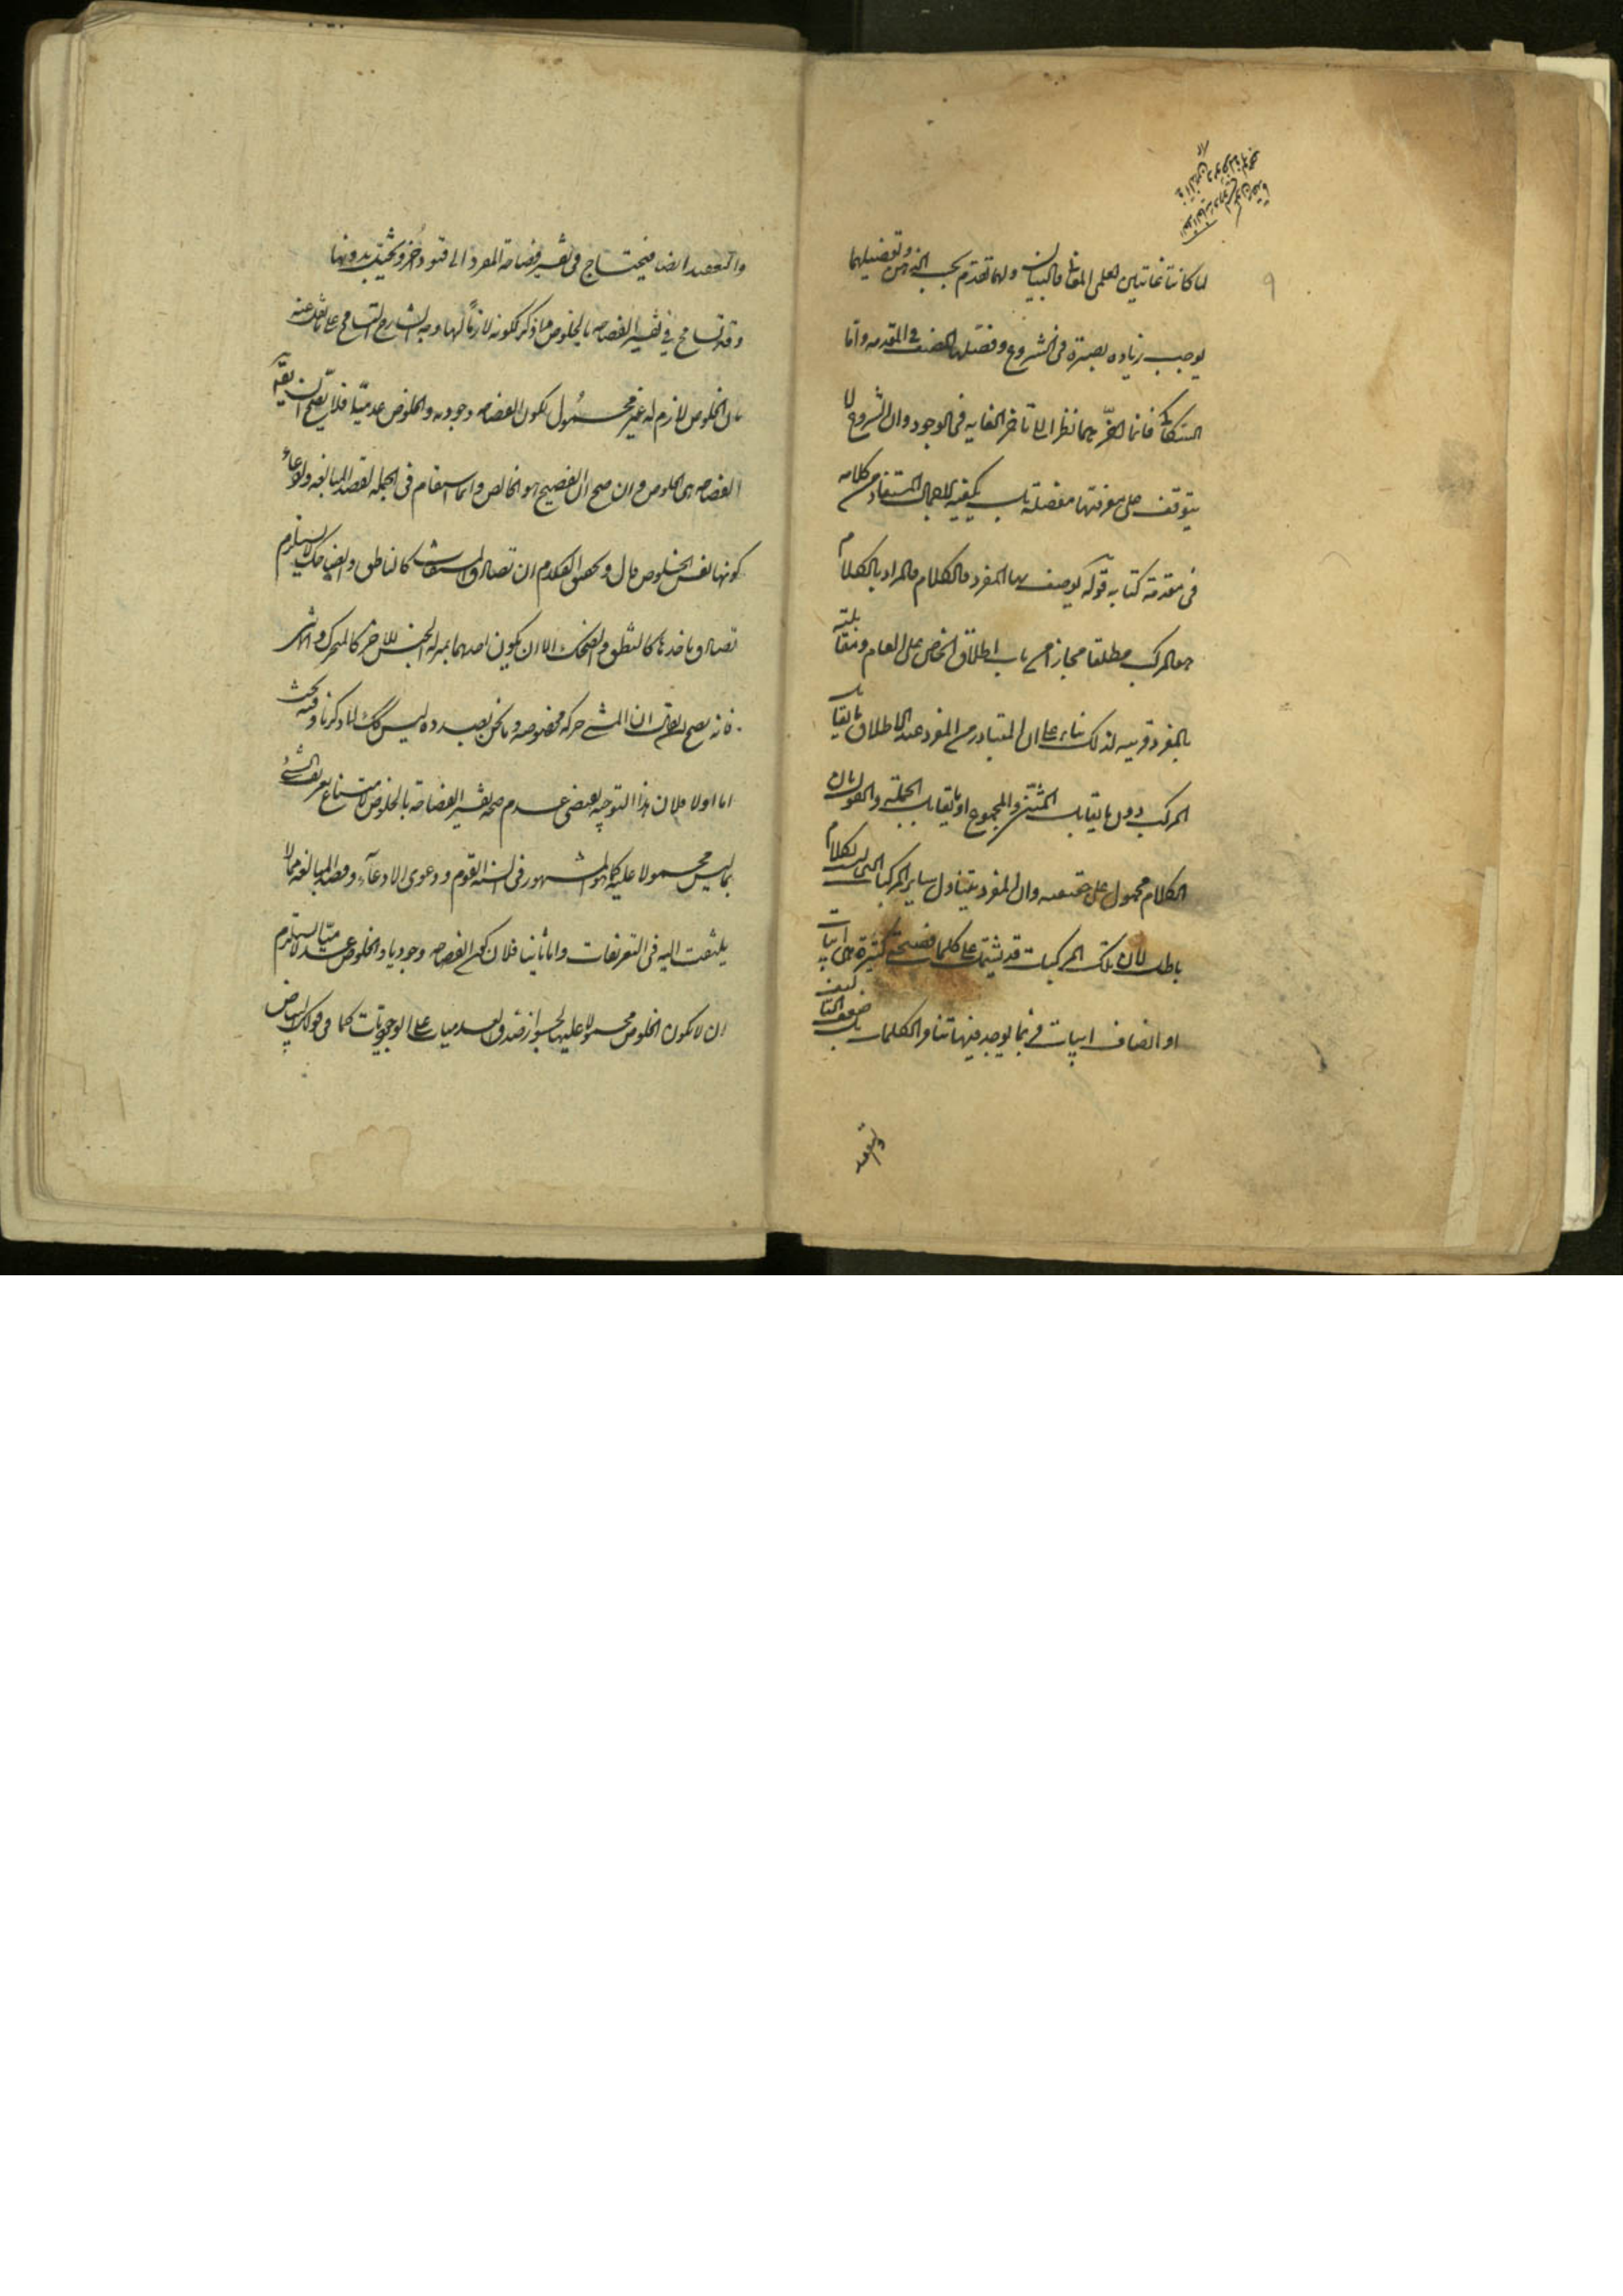 لما كانتا غايتين لعلمى المعانى والبيان ولهما تقدم بحسب الذهن وتفصيلهما
يوجب زيادة بصيرة فى الشروع فصلهما المصنف فى المقدمه واما
السكاكى فانما اخرهما نظرا الى تاخر الغايه فى الوجود وان الشروع لا
يتوقف على معرفتها مفصلة بل يكفيه الاجمال المستفاد من كلامه
فى مقدمة كتابه قوله يوصف بها المفرد والكلام المراد بالكلام
هو المركب مطلقا مجازا من باب اطلاق الخاص على العام ومقابلته
بالمفرد قرينه لذلك بناء على ان المتبادر من المفرد عند الاطلاق ما يقابل
المركب دون ما يقابل المثنى والمجموع او ما يقابل الجملة والقول بان
الكلام محمول على حقيقته وان المفرد يتناول ساير المركبات التى ليست بكلام
باطل لان تلك المركبات قد يشتمل على كلمات فصيحة كثيرة حتى ابيات
او انصاف ابيات فربما يوجد فيها تنافر الكلمات بل ضعف التاليف
والتعقيد
والتعقيد ايضا فيحتاج فى تفسير فصاحة المفرد الى قيود اخر وبحيث بدونها
وقد تسامح فى تفسير الفصاحه بالخلوص مما ذكر لكونه لازما لها وجه الشارح التسامح على ما نقل عنه
بان الخلوص لازم له غير محمول لكون الفصاحه وجوديه والخلوص عدميا فلا يصح ان يقال
الفصاحه هى الخلوص وان صح ان الفصيح هو الخالص وانما استقام فى الجمله لقصد المبالغه وادعاء
كونها نفس الخلوص قال وتحقيق الكلام ان تصادق المشتقات كالناطق والضاحك لا يستلزم
تصادق ماخذها كالنطق والضحك الا ان يكون احدهما بمنزله الجنس للاخر كالمتحرك والماشى
فانه يصح ان يقال ان المشى حركه مخصوصه وما نحن بصدده ليس كك لما ذكرنا وفيه بحث
اما اولا فلان هذا التوجيه يقتضى عدم صحه تفسير الفصاحة بالخلوص لامتناع تعريف الشئ
بما ليس محمولا عليه كما هو المشهور فى السنه القوم ودعوى الادعآء وقصد المبالغه مما لا
يلتفت اليه فى التعريفات واما ثانيا فلان كون الفصاحه وجوديا والخلوص عدميا لا يستلزم
ان لا يكون الخلوص محمولا عليها لجواز صدق العدميات على الوجوديات كما فى قولك البياض